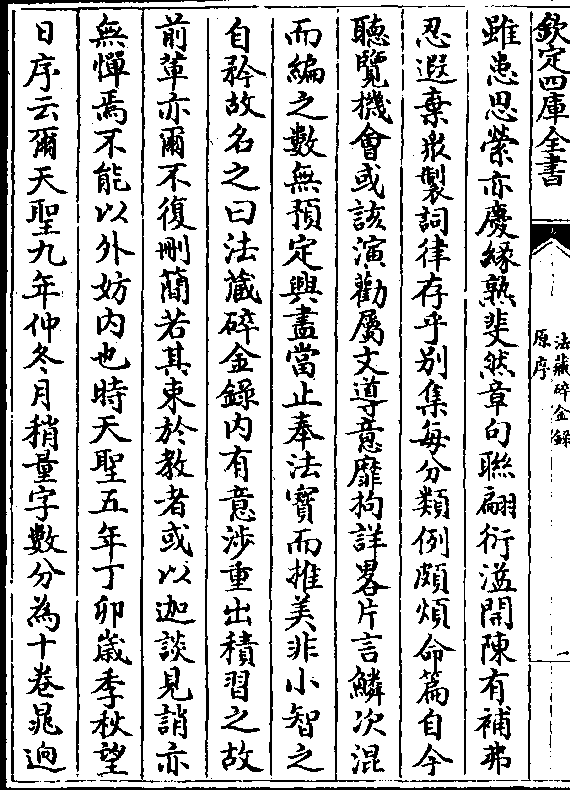 欽定四庫全書
法藏碎金錄
原序
一
雖患思縈亦慶縁熟斐然章句聯翩衍溢開陳有補弗
忍遐棄衆製詞律存乎别集每分類例頗煩命篇自今
聽覽機會或該演勸屬文導意靡拘詳畧片言鱗次混
而編之數無預定興盡當止奉法寳而推美非小智之
自矜故名之曰法藏碎金錄内有意涉重出積習之故
前軰亦爾不復刪簡若其束於教者或以迦談見誚亦
無憚焉不能以外妨内也時天聖五年丁卯歳季秋望
日序云爾天聖九年仲冬月稍量字數分為十卷晁迥